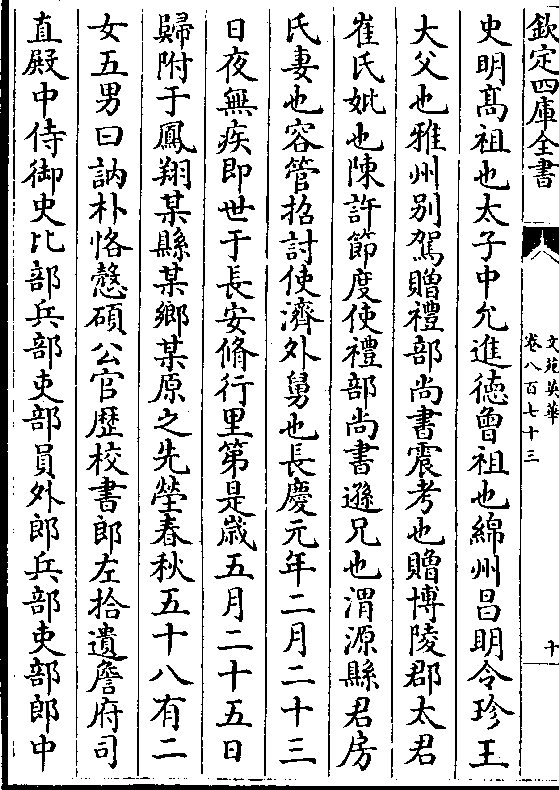 欽定四庫全書
文苑英華
卷八百七十三
十
史明髙祖也太子中允進徳曾祖也綿州昌明令珍王
大父也雅州别駕贈禮部尚書震考也贈博陵郡太君
崔氏妣也陳許節度使禮部尚書遜兄也渭源縣君房
氏妻也容管招討使濟外舅也長慶元年二月二十三
日夜無疾即世于長安脩行里第是歳五月二十五日
歸附于鳳翔某縣某鄉某原之先塋春秋五十八有二
女五男曰訥朴恪慤碩公官歴校書郎左拾遺詹府司
直殿中侍御史比部兵部吏部員外郎兵部吏部郎中